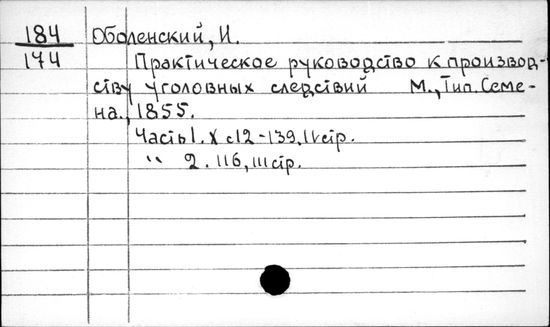 184 Оболенский, И.
174 Практическое руководство к производ-
ству уголовных следствий М., Тип. Семе-
на., 1855.
Часть 1. X с 12-139, IV стр.
" 2. 116, III стр.